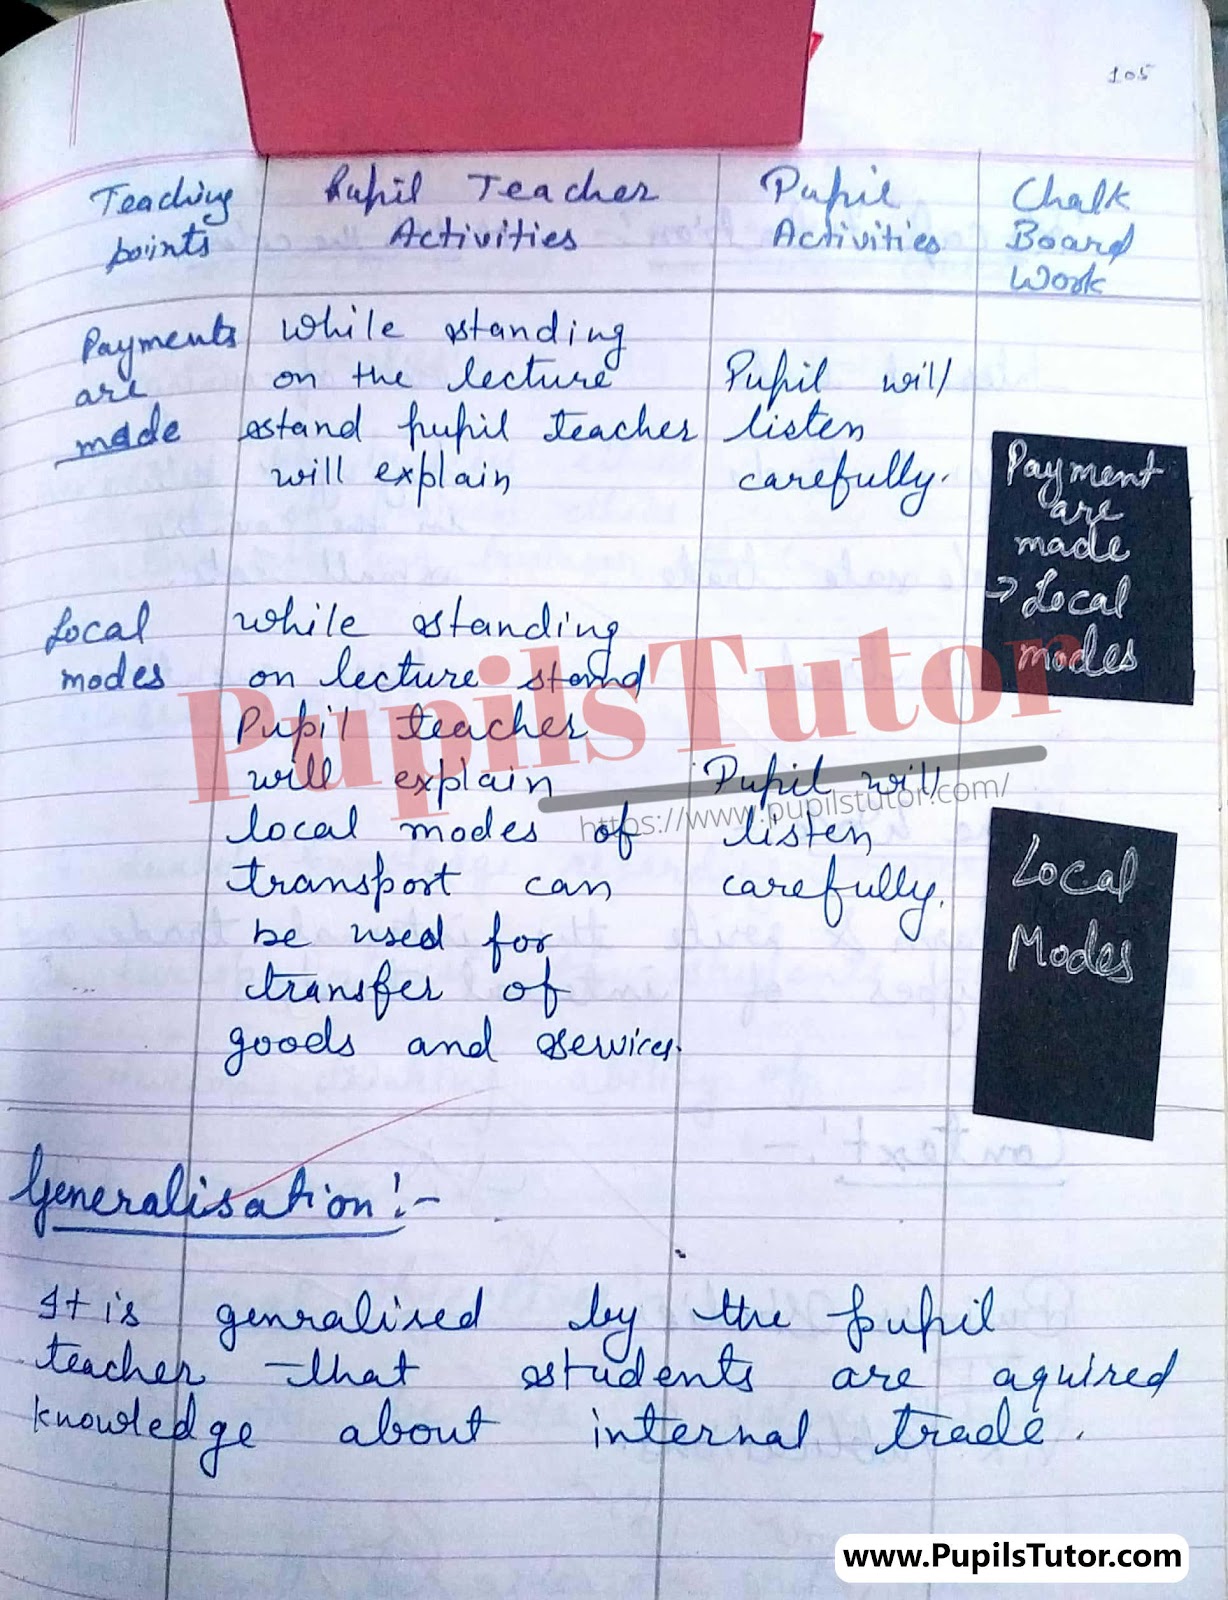 105
Teaching
points
Pupil Teacher
Activities
Pupil
Activities
Chalk
Board
Work
Payments
are
made
while standing
on the lecture
stand pupil teacher
will explain
Pupil will
listen
carefully.
Payment
are
made
→ Local
modes
Local
modes
while standing
on lecture stand
Pupil teacher
will explain
local modes of
transport can
be used for
transfer of
goods and services.
Pupil will
listen
carefully.
Local
Modes
PupilsTutor
https://www.pupilstutor.com/
Generalisation :-
It is genralised by the pupil
teacher that students are aquired
knowledge about internal trade.
www.PupilsTutor.com